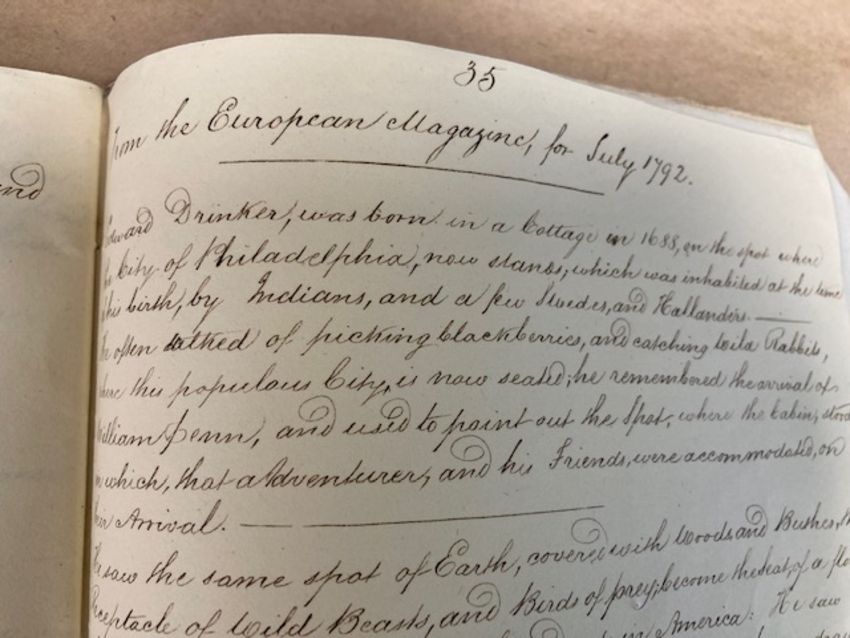 35
From the European Magazine, for July 1792.
nd
Edward Drinker, was born in a Cottage in 1688, on the spot where
the City of Philadelphia, now stands, which was inhabited at the time
of his birth, by Indians, and a few Swedes, and Hallanders.
He often talked of picking blackberries, and catching Wild Rabbits,
where this populous City, is now seated; he remembered the arrival of
William Penn, and used to point out the Spot, where the Cabin, stood
in which, that Adventurer, and his Friends, were accommodated, on
their Arrival.
He saw the same spot of Earth, covered with Woods and Bushes, the
Receptacle of Wild Beasts, and Birds of prey; become the Seat, of a
in America: He saw